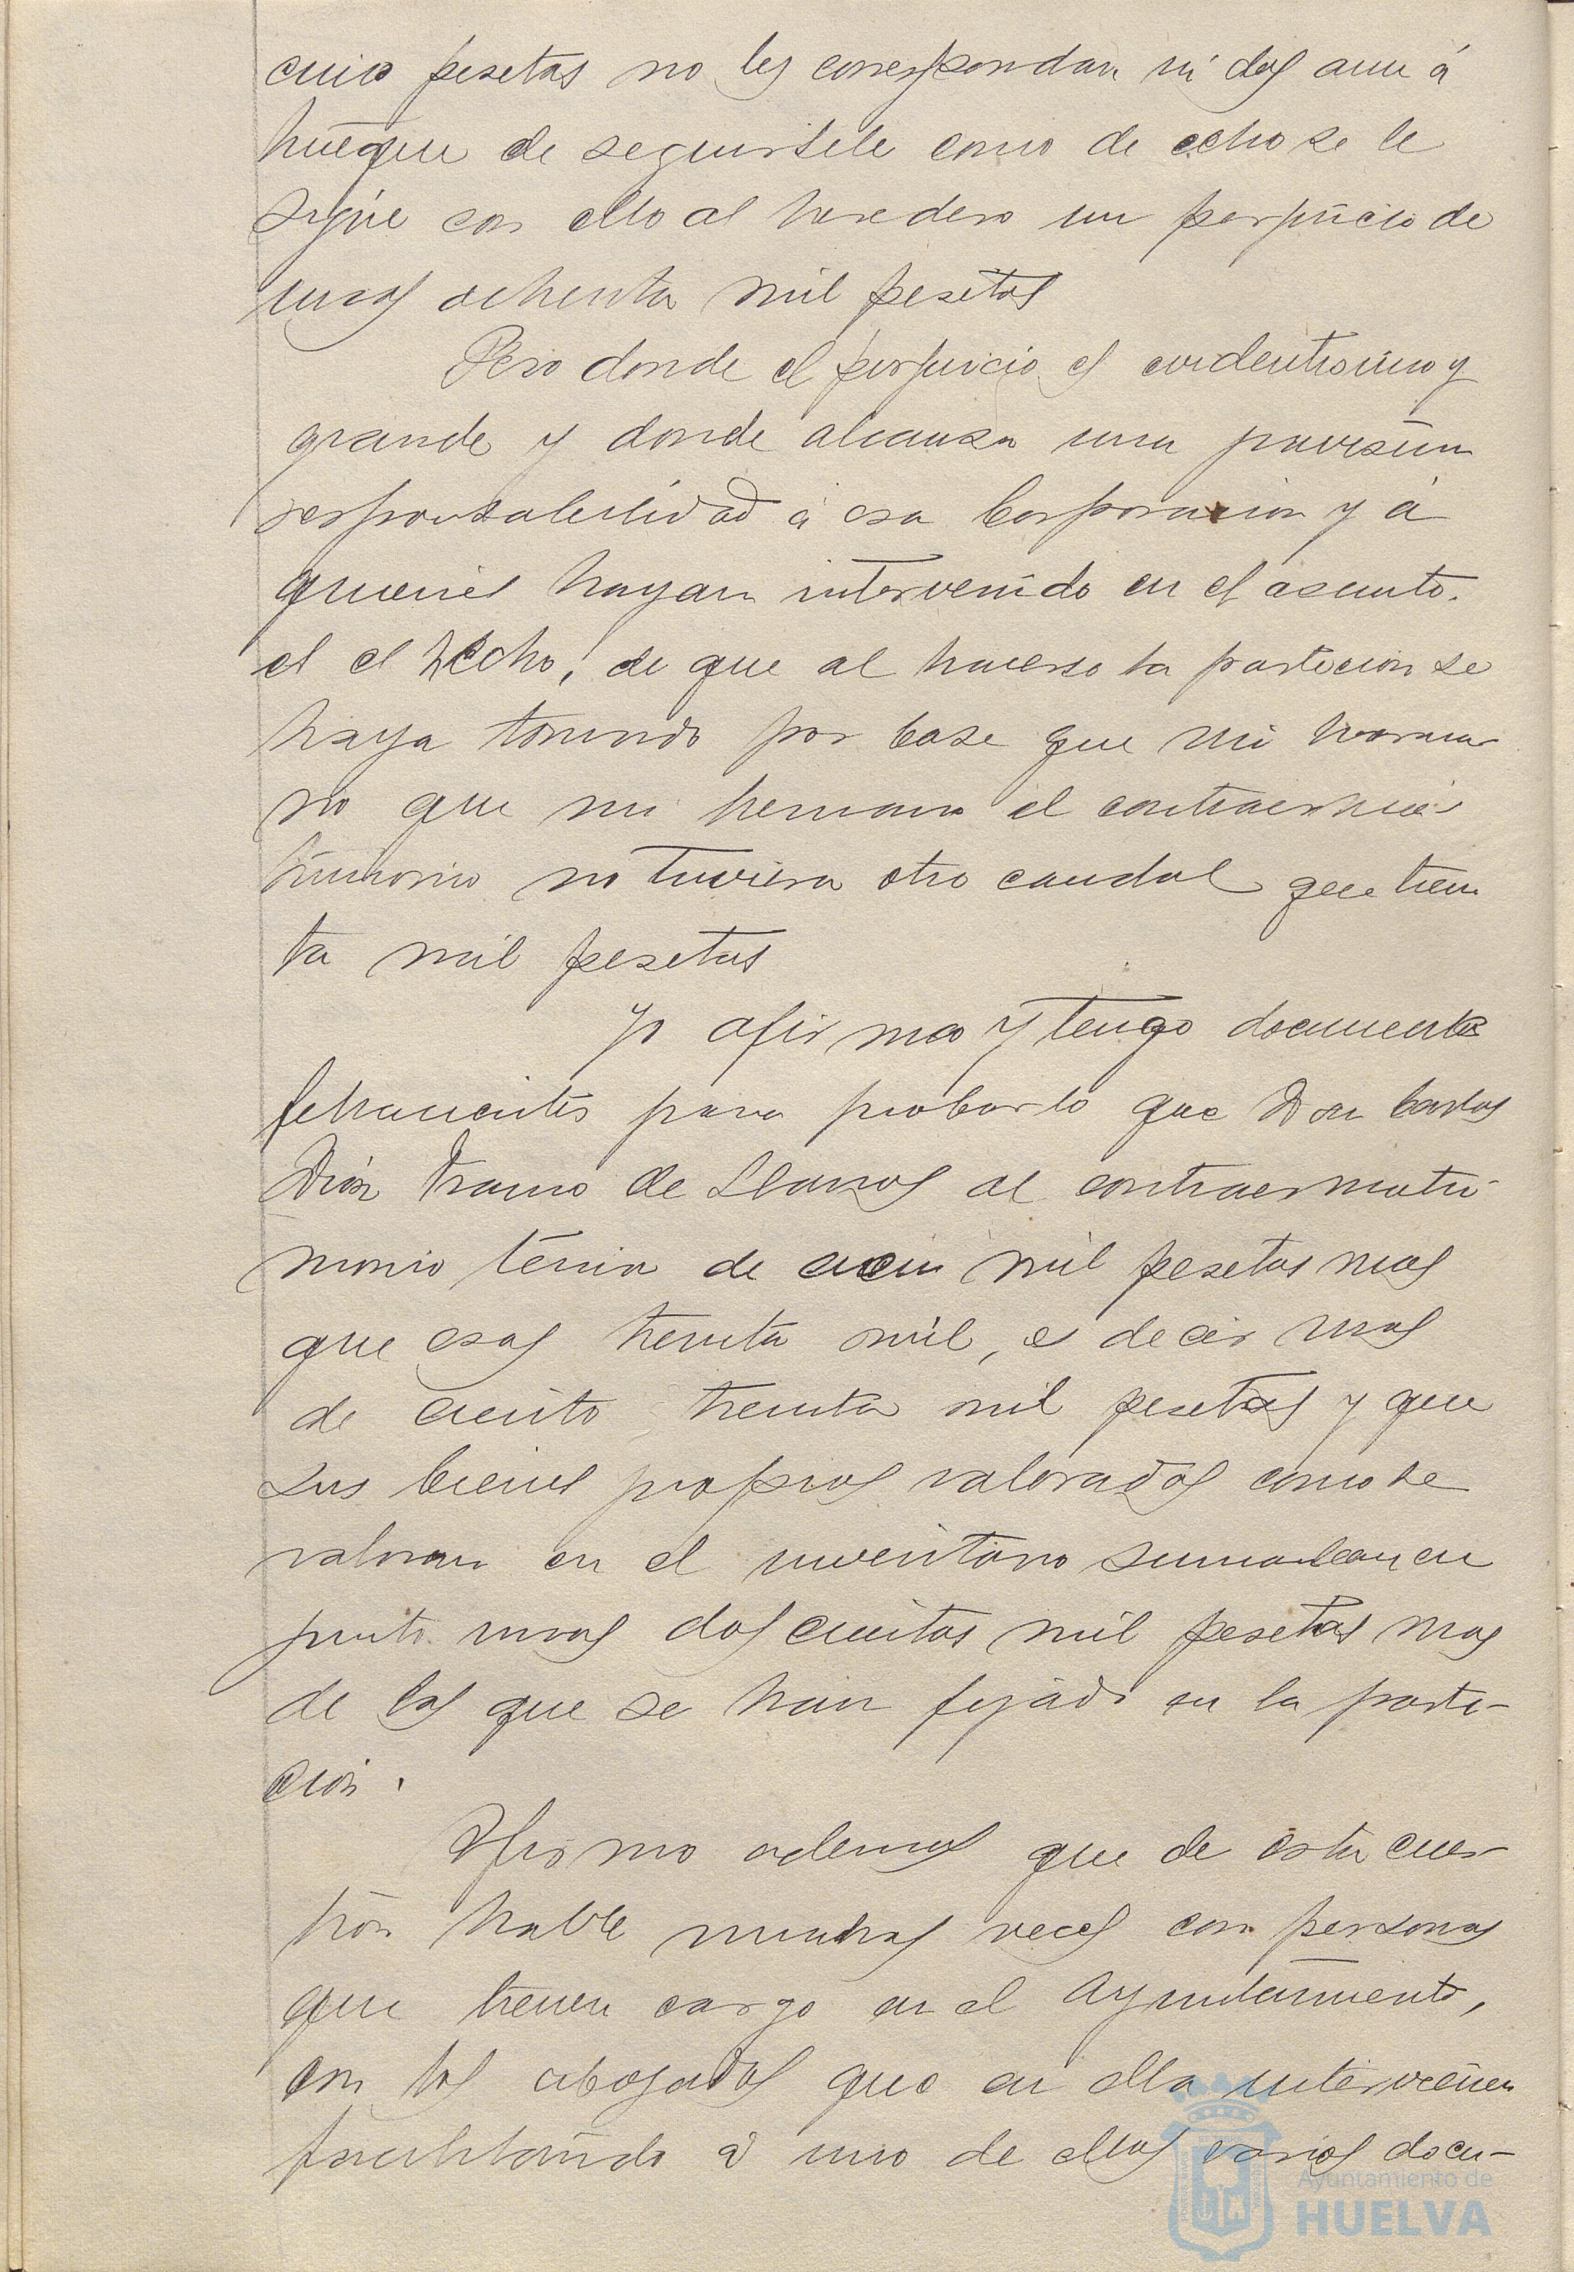 cinco pesetas no les correspondan ni dos aun á
trueque de seguirsele como de echo se le
sigue con ello al heredero un perjuicio de
unas ochenta mil pesetas
Pero donde el perjuicio es evidentisimo y
grande y donde alcanza una gravisima
responsabilidad á esa Corporacion y á
quienes hayan intervenido en el asunto.
es el hecho, de que al hacerse la particion se
haya tomado por base que mi herma
no que mi hermano al contraer ma-
trimonio no tuviera otro caudal que trein
ta mil pesetas
Yo afirmo y tengo documentos
fehacientes para probarlo que Don Carlos
Diáz Franco de Llanos al contraer matri-
monio tenia de cien mil pesetas mas
que esas treinta mil, es decir mas
de ciento treinta mil pesetas y que
sus bienes propios valorados como se
valoran en el inventario sumaban en
junto unas doscientas mil pesetas mas
de las que se han fijado en la parti-
cion.
Afirmo ademas que de esta cues-
tion hable muchas veces con personas
que tienen cargo en el Ayuntamiento,
con los abogados que en ella intervienen
facilitando á uno de ellos varios docu-
Ayuntamiento de
HUELVA